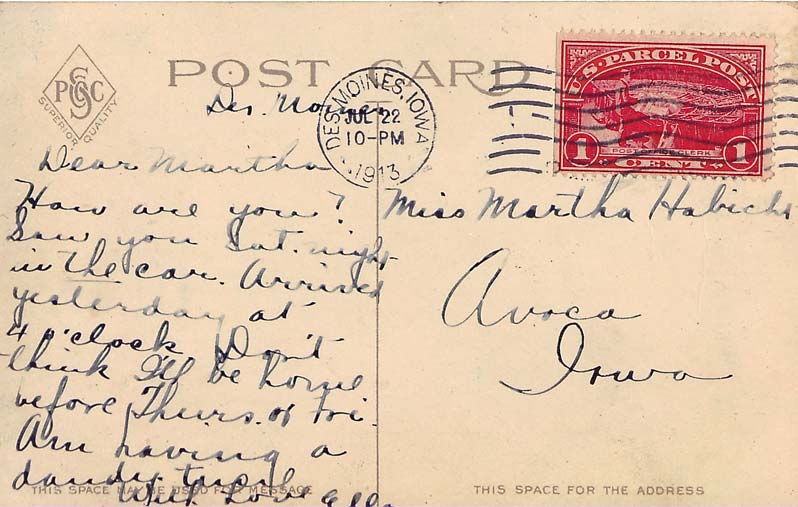 POST CARD
PGSC
SUPERIOR QUALITY
Des Moines
DES MOINES, IOWA
JUL 22
10-PM
1913
U.S. PARCEL POST
POST OFFICE CLERK
1 CENT 1
Dear Martha
How are you?
Saw you Sat. night
in the car. Arrived
yesterday at
4 o'clock. Don't
think I'll be home
before Thurs. or Fri.
Am having a
dandy time.
With Love
Miss Martha Habicht
Avoca
Iowa
THIS SPACE MAY BE USED FOR MESSAGE
THIS SPACE FOR THE ADDRESS